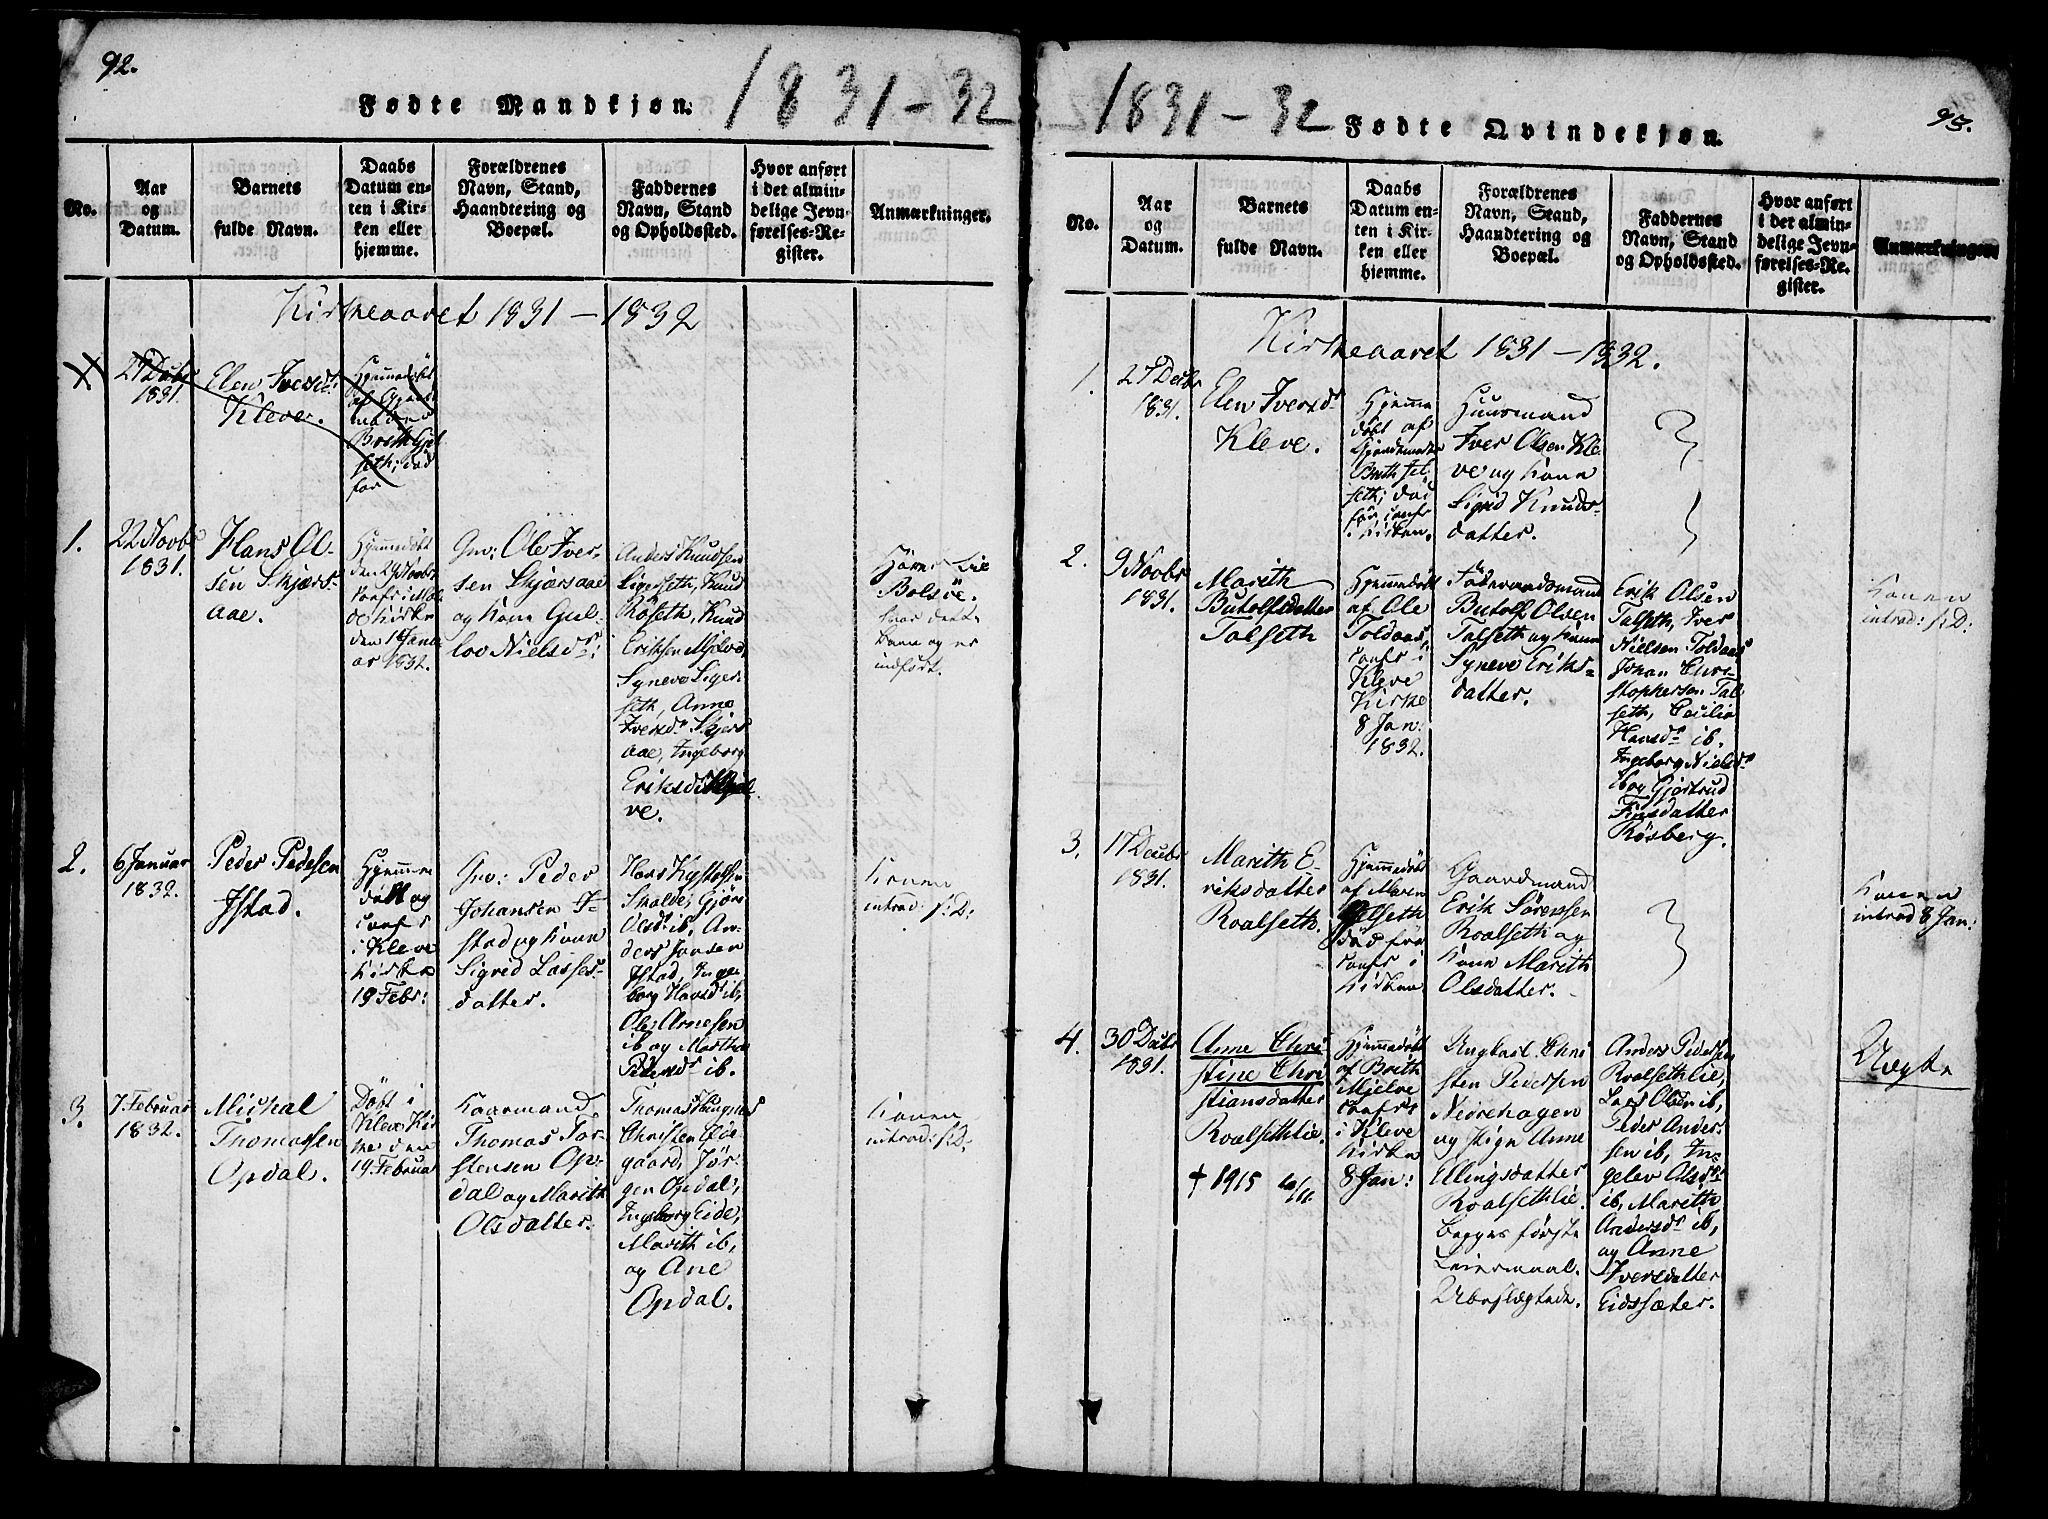 92.
Fødte Mandkjøn.
1831-32
No.
Aar
og
Datum.
Barnets
fulde Navn.
Daabs
Datum en-
ten i Kir-
ken eller
hjemme.
Forældrenes
Navn, Stand,
Haandtering og
Boepæl.
Faddernes
Navn, Stand
og Opholdssted.
Hvor anført
i det almin-
delige Jevn-
førelses-Re-
gister.
Anmærkninger.
Kirkeaaret 1831-1832
27 Decbr
1831.
Elen Iversd.
Kleve.
Hjemmedöbt
af Gjorde
moder
Brith Gjel
seth; död
för
1.
22 Novbr
1831.
Hans Ol-
sen Skjærs-
aae.
Hjemmedöbt
den 29 Novbr
Kirke
den 1 Janu
ar 1832.
Gm: Ole Iver-
sen Skjörsaae
og Kone Gul-
lov Nielsdr:
Anders Knudsen
Ligerseth, Knud
Röseth, Knud
Eriksen Mjelve,
Syneve Liger
seth, Anne
Iversdr Skjers
aae, Ingeborg
Eriksdr Mjel
ve.
Hörer til
Bolsöe.
hvor dette
Barn og er
indfört.
2.
6 Januar
1832.
Peder Pedersen
Istad.
Hjemme
döbt og
conf:
i Kleve
Kirke
19 Febr:
Gm: Peder
Johansen I-
stad og Kone
Sigrid Lasses-
datter.
Hans Kystolsen
Skalde, Gjöri
Olsdr ib, An-
ders Jonsen
Istad, Inge
borg Hansdr ib,
Ole Arnesen
ib og Marthe
Pedersdr ib.
Konen
introd: s: D:
3.
7 Februar
1832.
Michal
Thomassen
Opdal.
Döbt i
Kleve Kir
ke den
19 Februar
Gaarmand
Thomas Tor-
stensen Op-
dal og Marith
Olsdatter.
Thomas Hungnes
Christen Ege
gaard, Jör-
gen Opdal,
Ingeborg Eide,
Marith ib,
og Ane
Opdal.
Konen
introd: s: D:
1831-32
93.
Fødte Qvindekjøn.
No.
Aar
og
Datum.
Barnets
fulde Navn.
Daabs
Datum en-
ten i Kir-
ken eller
hjemme.
Forældrenes
Navn, Stand,
Haandtering og
Boepæl.
Faddernes
Navn, Stand
og Opholdssted.
Hvor anført
i det almin-
delige Jevn-
førelses-Re-
gister.
Anmærkninger
Kirkeaaret 1831-1832.
1.
27 Decbr
1831.
Elen Iversd.
Kleve.
Hjemme
döbt af
Gjordemoder
Brith Jel
seth; död
för confr
i Kirken.
Huusmand
Iver Olsen Kle
ve og Kone
Sigrid Knuds-
datter.
2.
9 Novbr
1831.
Marith
Butolfsdatter
Talseth
Hjemmedöbt
af Ole
Toldaas
confr i
Kleve
Kirke
8 Jan:
1832.
Föderaadsmand
Butolf Olsen
Talseth og Kone
Syneve Eriks-
datter.
Erik Olsen
Talseth, Iver
Nielsen Toldaas
Johan Chri-
stophersen Tal
seth, Cecilia
Hansdr ib.
Ingeborg Nielsdr
ib og Gjertrud
Finsdatter
Rösberg.
Konen
introd: s: D:
3.
17 Decbr
1831.
Marith E-
riksdatter
Roalseth.
Hjemmedöbt
af Maren
Jelseth
död för
confr i
Kirken
Gaardmand
Erik Sörenssen
Roalseth og
Kone Marith
Olsdatter.
Konen
introd 8 Jan.
4.
30 Decbr
1831.
Anne Chri
stine Chri
stiansdatter
Roalsethlie.
† 1915
Hjemmedöbt
af Brith
Mjelve
confr
i Kleve
Kirke
8 Jan:
Ungkarl Chri
sten Pedersen
Nedrehagen
og Pigen Anne
Ellingsdatter
Roalsethlie.
begges förste
Leiermaal.
Ubeslægtede.
Anders Pedersen
Roalsethlie,
Lars Olsen ib,
Peder Ander
sen ib, In-
gelev Olsdr
ib, Marithe
Andersdr ib,
og Anne
Iversdatter
Eidssæter.
Uægte